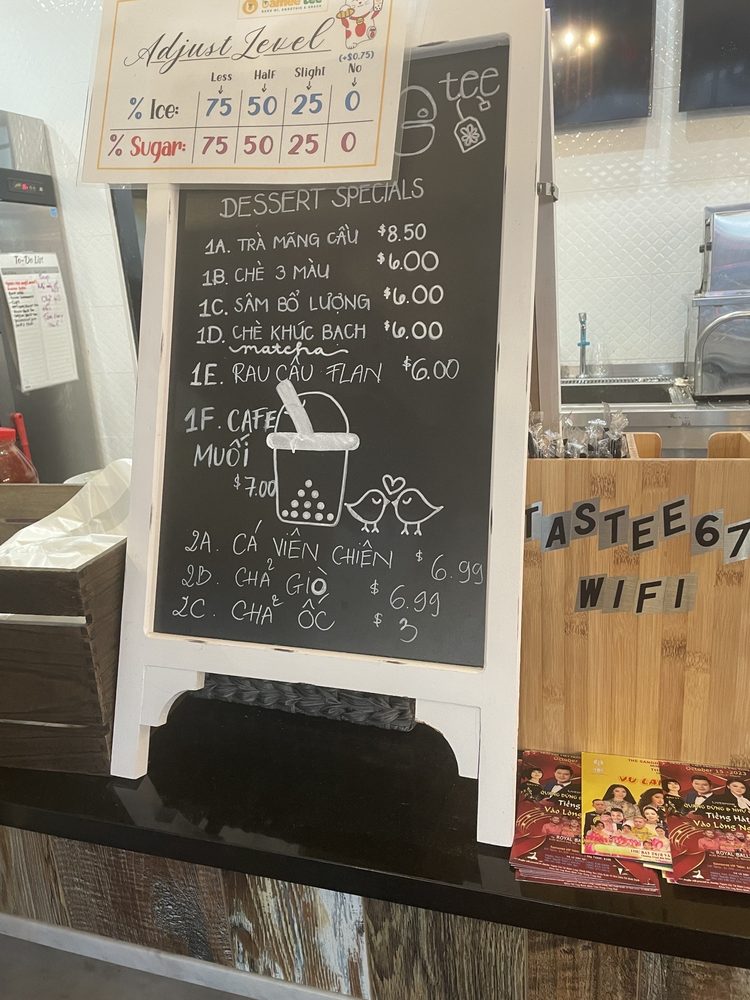 Adjust Level
(+$0.75)
Less Half Slight No
% Ice: 75 50 25 0
% Sugar: 75 50 25 0
tee
DESSERT SPECIALS
1A. TRÀ MÃNG CẦU $8.50
1B. CHÈ 3 MÀU $6.00
1C. SÂM BỔ LƯỢNG $6.00
1D. CHÈ KHÚC BẠCH $6.00
matcha
1E. RAU CÂU FLAN $6.00
1F. CAFE
MUỐI
$7.00
2A. CÁ VIÊN CHIÊN $6.99
2B. CHẢ GIÒ $6.99
2C. CHẢ ỐC $3
To-Do List
TASTEE67
WIFI
October 15 - 2023
Tiếng Hát
Vào Lòng